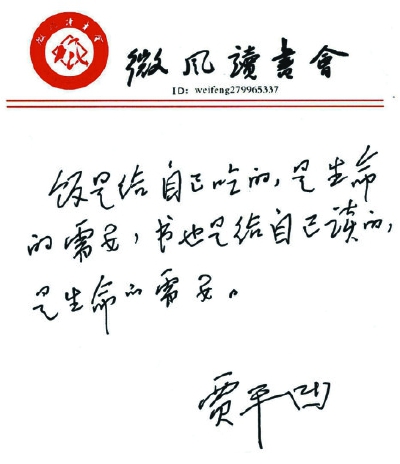 微风讀書會
ID: weifeng279965337
饭是给自己吃的,是生命
的需要,书也是给自己读的,
是生命的需要。
贾平凹